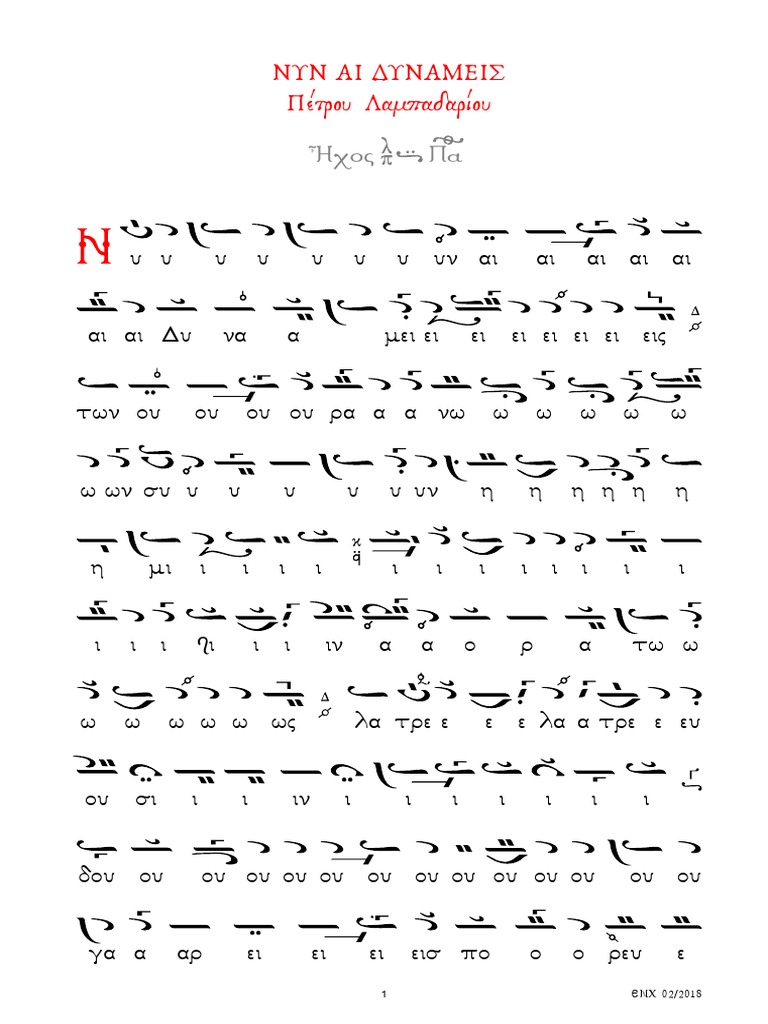 ΝΥΝ ΑΙ ΔΥΝΑΜΕΙΣ
Πέτρου Λαμπαδαρίου
Ἦχος λ π Πα
Ν υ υ υ υ υ υ υ υν αι αι αι αι αι
αι αι Δυ να α μει ει ει ει ει ει ει εις
των ου ου ου ου ρα α α νω ω ω ω ω ω
ω ων συ υ υ υ υ υ υν η η η η η η
η μι ι ι ι ι ι ι ι ι ι ι ι
ι ι ι ηι ι ι ιν α α ο ρ α τω ω
ω ω ω ω ω ως λα τρε ε ε ε λα α τρε ε ευ
ου σι ι ι ιν ι ι ι ι ι ι ι
δου ου ου ου ου ου ου ου ου ου ου ου ου ου
γα α αρ ει ει ει εισ πο ο ο ρευ ε
1
ΕΝΧ 02/2018